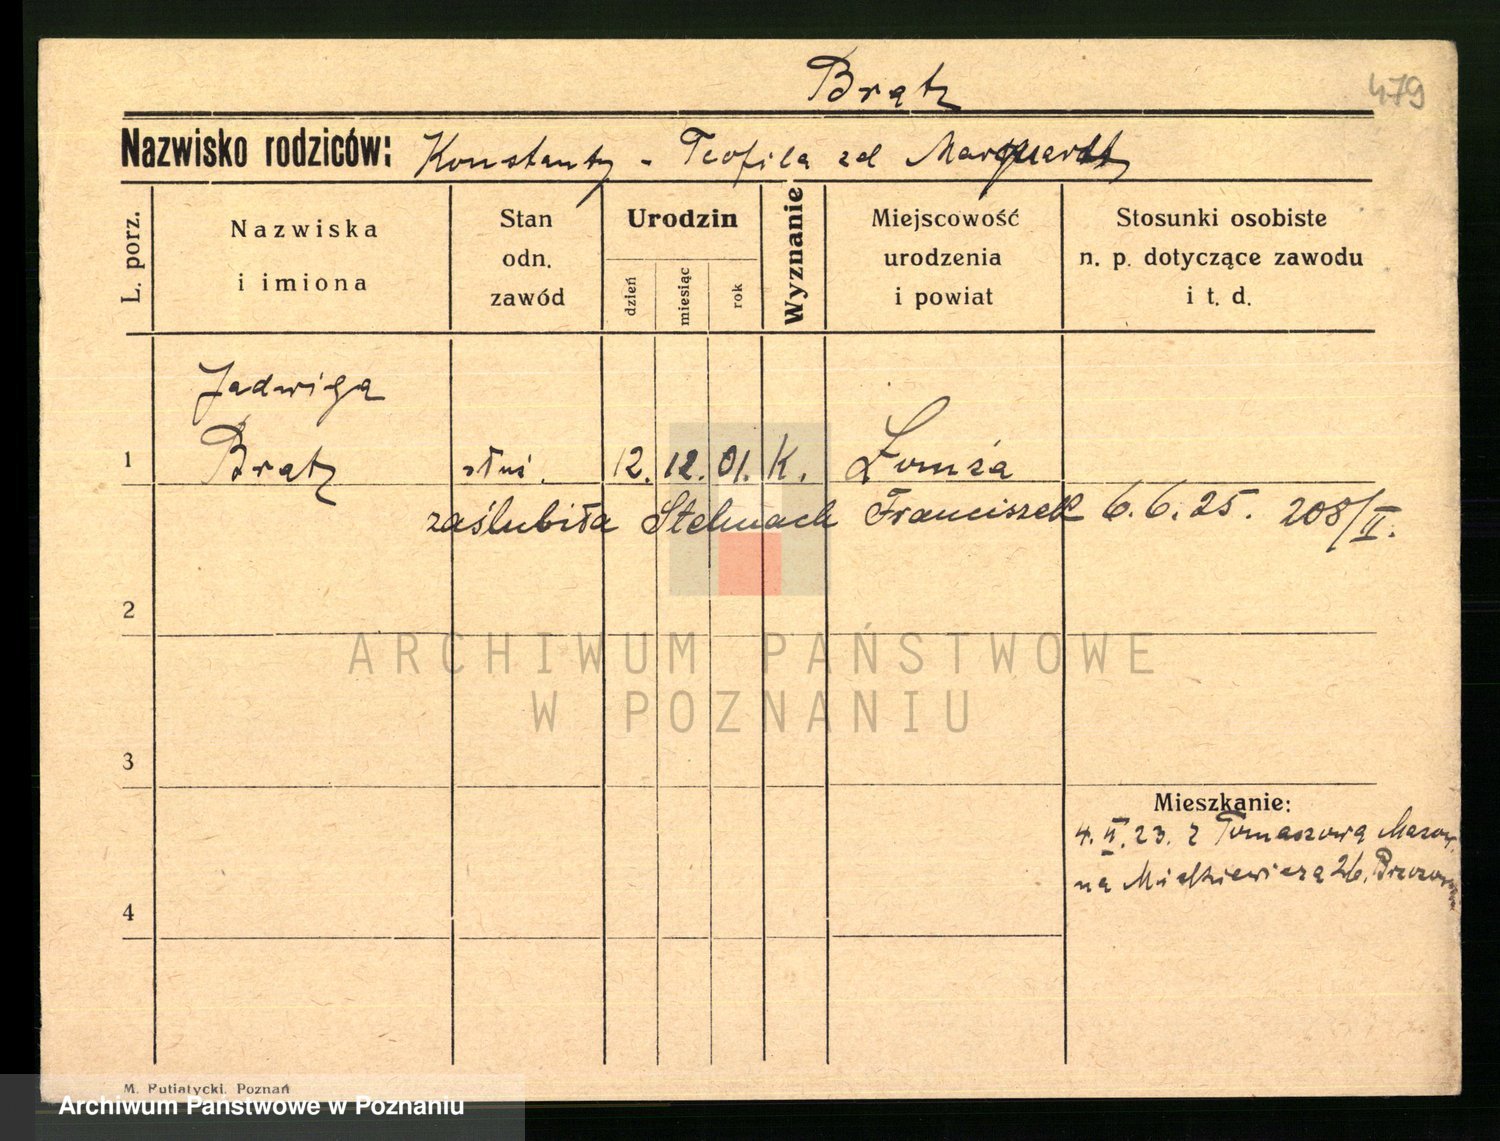 Brątz
479
Nazwisko rodziców: Konstanty - Teofila zd Marquardt
L. porz.
Nazwiska
i imiona
Stan
odn.
zawód
Urodzin
dzień
miesiąc
rok
Wyznanie
Miejscowość
urodzenia
i powiat
Stosunki osobiste
n. p. dotyczące zawodu
i t. d.
Jadwiga
1 Brątz służ. 12. 12. 01. K. Łomża
zaślubiła Stelmach Franciszek 6. 6. 25. 208/II.
2
ARCHIWUM PAŃSTWOWE
W POZNANIU
3
Mieszkanie:
4. II. 23. z Tomaszowa Mazow.
na Mickiewicza 26.
4
M. Putiatycki, Poznań
Archiwum Państwowe w Poznaniu